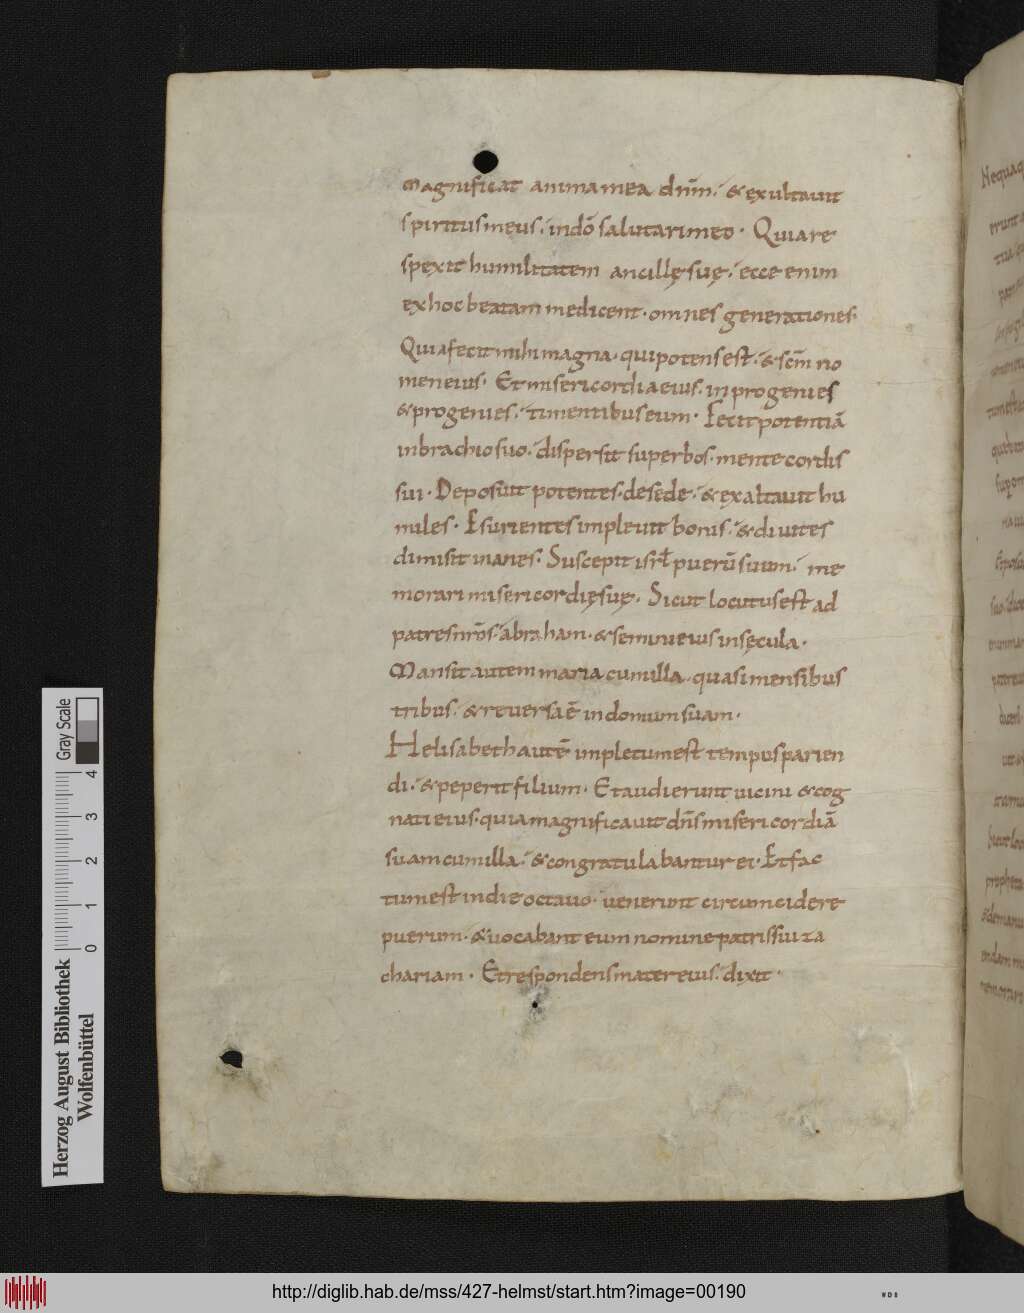 Magnificat anima mea dnm̄. & exultauit
spiritus meus. in dō salutari meo. Quia re
spexit humilitatem ancillę suę. ecce enim
ex hoc beatam me dicent. omnes generationes.
Quia fecit mihi magna. qui potens est. & scm̄ no
men eius. Et misericordia eius. in progenies
& progenies. timentibus eum. Fecit potentiā
in brachio suo. dispersit superbos. mente cordis
sui. Deposuit potentes. de sede. & exaltauit hu
miles. Esurientes impleuit bonis. & diuites
dimisit inanes. Suscepit isrl̄ puerū suum. me
morari misericordię suę. Sicut locutus est ad
patres nrōs. abraham. & semini eius in sęcula.
Mansit autem maria cum illa. quasi mensibus
tribus. & reuersa ē in domum suam.
Helisabeth autē impletum est tempus parien
di. & peperit filium. Et audierunt uicini & cog
nati eius. quia magnificauit dn̄s misericordiā
suam cum illa. & congratulabantur ei. Et fac
tum est in die octauo. uenerunt circumcidere
puerum. & uocabant eum nomine patris sui za
chariam. Et respondens mater eius. dixit.
Nequaq
erunt
Herzog August Bibliothek
Wolfenbüttel
Gray Scale
0 1 2 3 4
http://diglib.hab.de/mss/427-helmst/start.htm?image=00190